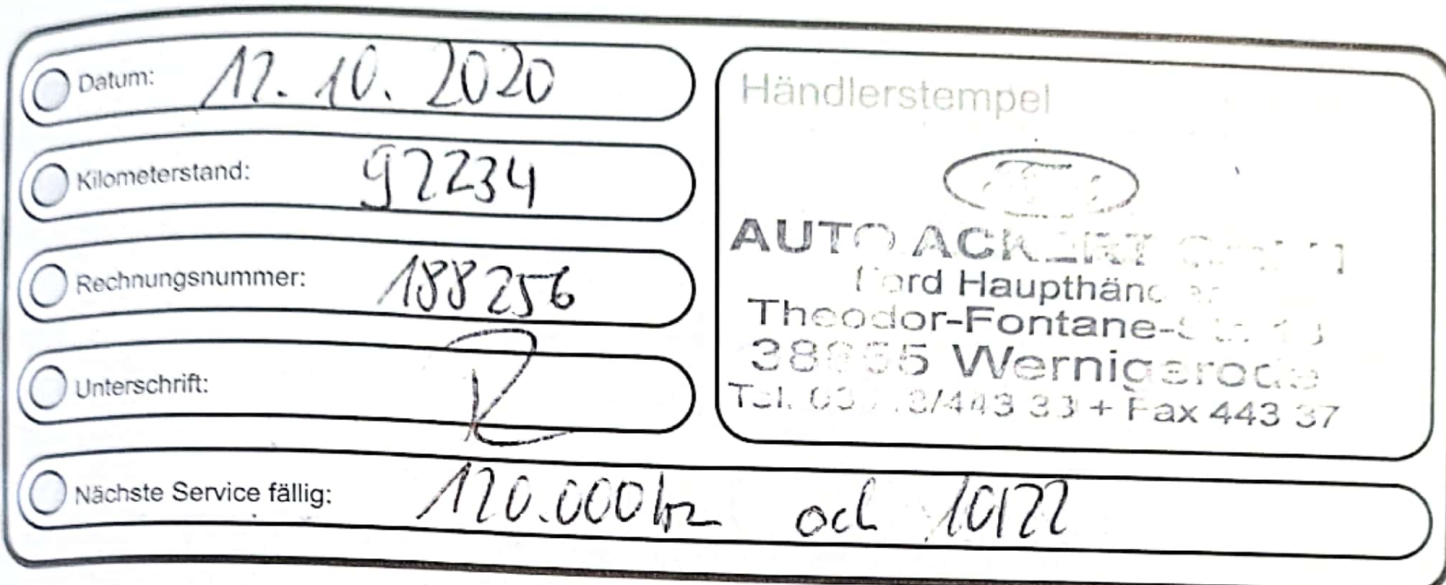 Datum: 12. 10. 2020
Kilometerstand: 92234
Rechnungsnummer: 188256
Unterschrift:
Nächste Service fällig: 120.000 km 10/22
Händlerstempel
Ford
AUTO ACKERT
Ford Haupthändler
Theodor-Fontane-
Wernigerode
Tel. 443 33 + Fax 443 37